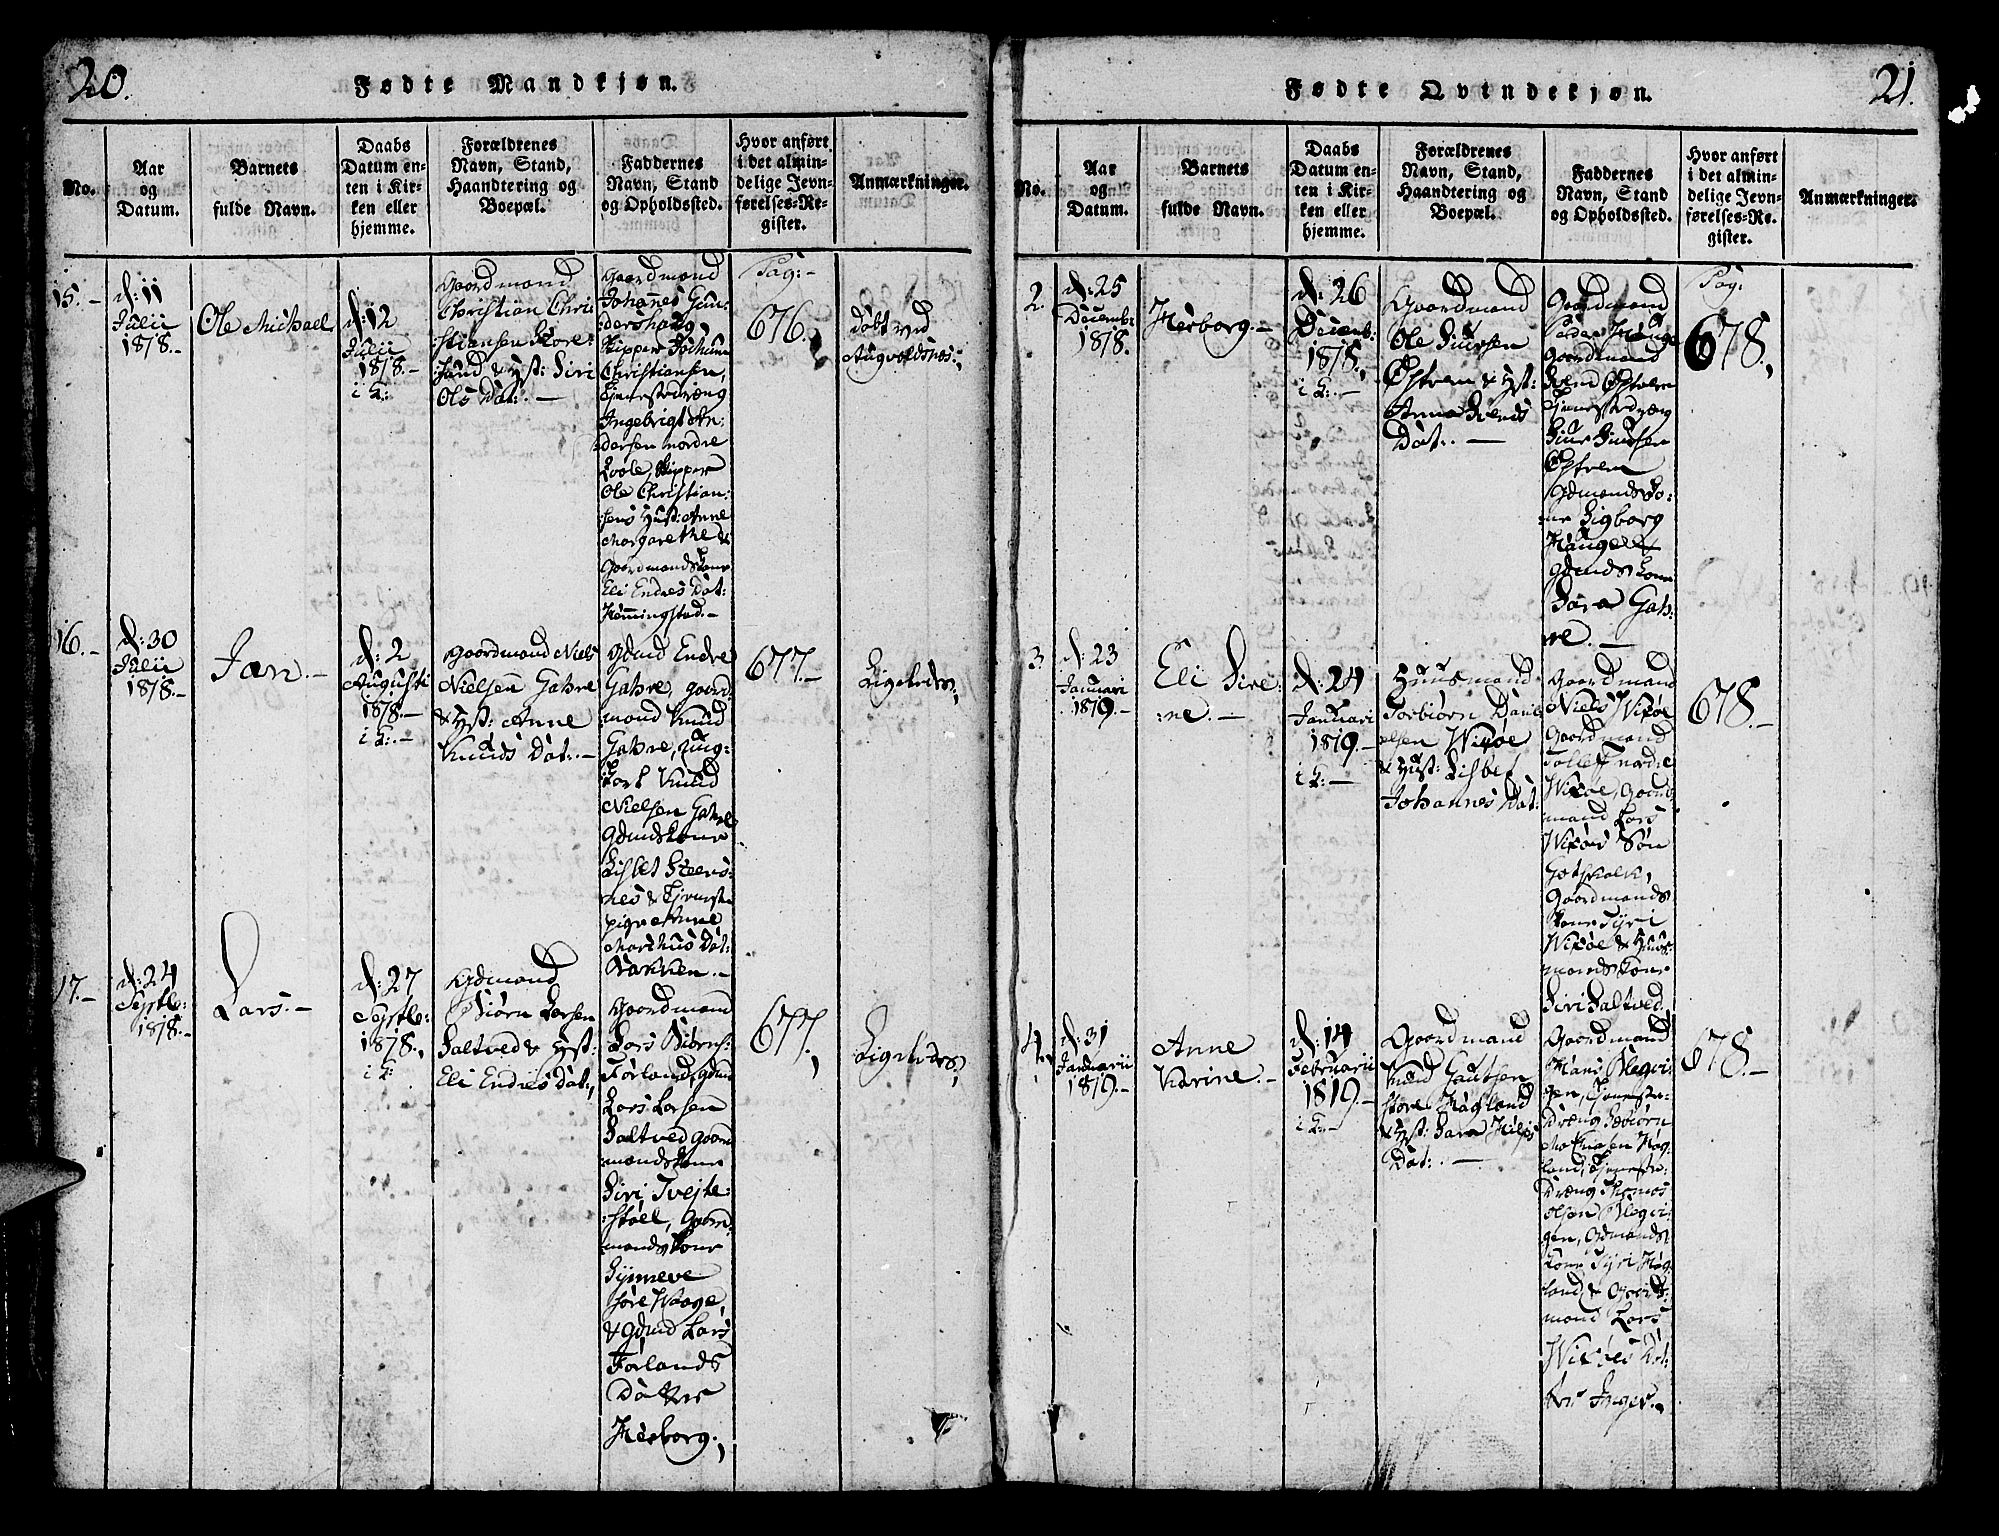 20.
Fødte Mandkjøn.
No.
Aar
og
Datum.
Barnets
fulde Navn.
Daabs
Datum en-
ten i Kir-
ken eller
hjemme.
Forældrenes
Navn, Stand,
Haandtering og
Boepæl.
Faddernes
Navn, Stand
og Opholdssted.
Hvor anført
i det almin-
delige Jevn-
førelses-Re-
gister.
Anmærkninger.
15.-
d: 11
Julii
1818.-
Ole Michael
d: 12
Julii
1818.-
i K:
Gaardmand
Christian Chri
stiansen Store
Sund & Hst: Siri
Ols Dat:.-
Gaardmand
Johanes Gun
dershaug
Skipper Jochum
Christiansen,
Tjenestedræng
Ingebrigt An:
dersen nordre
Skipper
Ole Christian:
sens Hust: Anne
Margarethe &
Gaardmandskone
Eli Endres Dat:
Hemmingstad.-
Pag:-
676.,
døbt ved
Augvoldsnes.,
16.-
d: 30
Julii
1818.-
Jan.-
d: 2
Augusti
1818.-
i K:.-
Gaardmand Niels
Nielsen Gahre
& Hst: Anne
Knuds Dat:.-
Gdmd Endre
Gahre, Gaard
mand Knud
Gahre, Ung-
karl Knud
Nielsen Gahre
Gdmdskone
Lisbet Steens-
næs & Tjeneste
pige Anne
Marthus Dat:
Bakken.-
677.-
Ligeledes,
17.-
d: 24
Septbr:
1818.-
Lars.-
d: 27
Septbr:
1818.,
i K:
Gdmand
Biørn Larsen
Saltved & Hst:
Eli Endres Dat:,
Gaardmand
Lars Biørns
Førland, Gdmd
Lars Larsen
Saltved Gaard
mandskone
Siri Tvejte:
Støel, Gaard
mandskone
Synneve
Søre Waage,
& Gdmd Lars
Førlands
Datter
Herborg.,
677.,
Ligeledes,
21.
Fødte Qvindekjøn.
No.
Aar
og
Datum.
Barnets
fulde Navn.
Daabs
Datum en-
ten i Kir-
ken eller
hjemme.
Forældrenes
Navn, Stand,
Haandtering og
Boepæl.
Faddernes
Navn, Stand
og Opholdssted.
Hvor anført
i det almin-
delige Jevn-
førelses-Re-
gister.
Anmærkninger.
2
d: 25
Decemb:
1818.
Herborg.-
d: 26
Decemb:
1818.,
i K:.-
Gaardmand
Ole Siursen
Østrem & Hst:
Anna Svends
Dat:.-
Gaardmand
Peder Hauge
Gaardmand
Svend Østrem
Tjenestedræng
Siur Siursen
Østrem
Gdmandsko-
ne Sigborg
Hauge &
Gdmdskone
Sara Gah:
re.-
Pag:
678.,
3
d: 23
Januari
1819.-
Eli Sere:
ne.-
d: 24
Januari
1819.-
i K:.-
Huusmand
Torbiørn Dani
elsen Wikøe
& Hust: Lisbet
Johannes Dat:
Gaardmand
Niels Wikøe
Gaardmand
Tollef nordre
Wikøe, Gaard
mand Lars
Wikøes Søn
Gotskalk,
Gaardmands
kone Tyri
Wikøe & Huus-
mandskone
Siri Saltved,
678.-
4.
d: 31
Januarii
1819.-
Anne
Karine.-
d: 14
Februarii
1819.-
i K:-
Gaardmand
Knud Gautsen
Store Hagland
& Hst: Sara Niels
Dat:.-
Gaardmand
Hans Blegvi
gen, Tjeneste-
dræng Torbiørn
Mathiasen Hag
land, Tjeneste:
dræng Thomas
Olsen Blegvi
gen, Gdmands
kone Tyri Hag
land, & Gaard
mand Lars
Wikøes Dat:
ter Inger.,
678.-